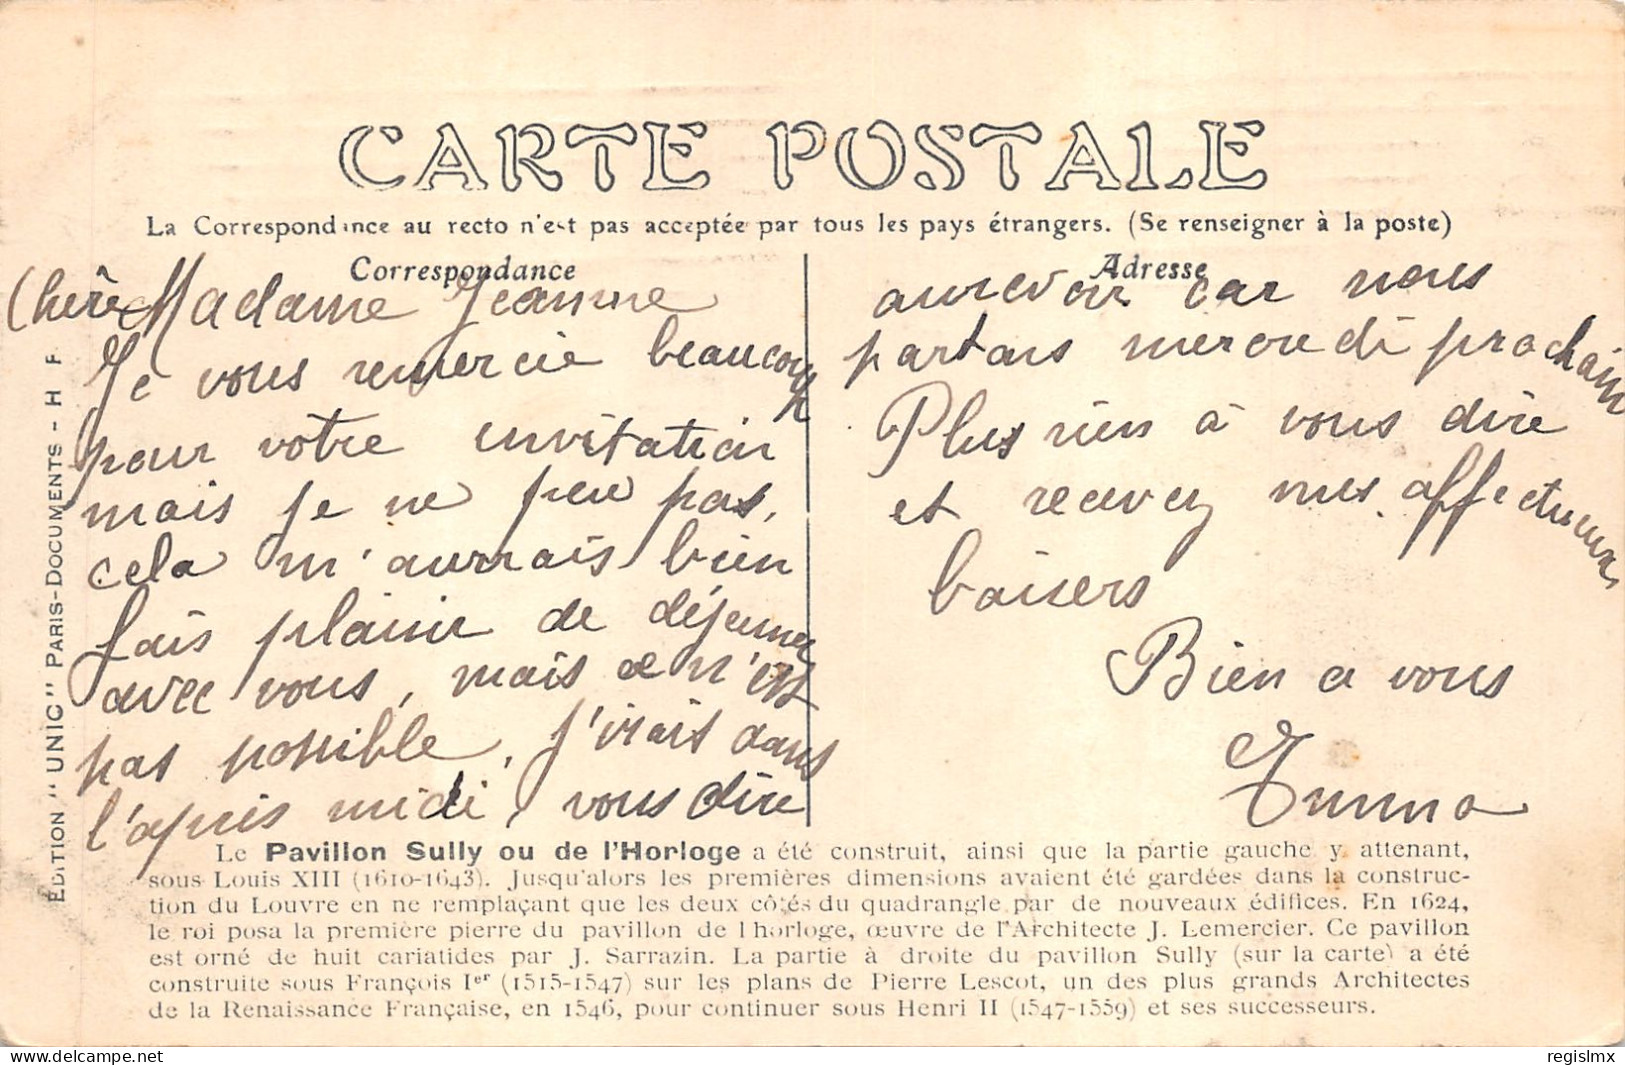 CARTE POSTALE
La Correspondance au recto n'est pas acceptée par tous les pays étrangers. (Se renseigner à la poste)
Correspondance
Chère Madame Jeanne
Je vous remercie beaucoup
pour votre invitation
mais je ne peu pas,
cela m'aurrais bien
fais plaisir de déjeuner
avec vous, mais ce n'est
pas possible, j'irais dans
l'apris midi, vous dire
Adresse
aurevoir car nous
partons mercredi prochain
Plus rien à vous dire
et recevez mes affectueux
baisers
Bien a vous
Emma
Le Pavillon Sully ou de l'Horloge a été construit, ainsi que la partie gauche y attenant,
sous Louis XIII (1610-1643). Jusqu'alors les premières dimensions avaient été gardées dans la construc-
tion du Louvre en ne remplaçant que les deux côtés du quadrangle par de nouveaux édifices. En 1624,
le roi posa la première pierre du pavillon de l'horloge, œuvre de l'Architecte J. Lemercier. Ce pavillon
est orné de huit cariatides par J. Sarrazin. La partie à droite du pavillon Sully (sur la carte) a été
construite sous François Ier (1515-1547) sur les plans de Pierre Lescot, un des plus grands Architectes
de la Renaissance Française, en 1546, pour continuer sous Henri II (1547-1559) et ses successeurs.
ÉDITION "UNIC" PARIS-DOCUMENTS - H F
www.delcampe.net
regislmx